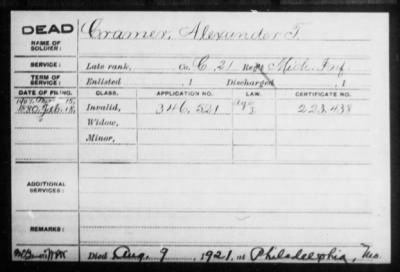 DEAD
NAME OF SOLDIER: Cramer, Alexander T.
SERVICE: Late rank, Co. C, 21 Reg't Mich. Inf
TERM OF SERVICE: Enlisted , 1 Discharged , 1
DATE OF FILING. CLASS. APPLICATION NO. LAW. CERTIFICATE NO.
1880, Feb. 18, Invalid, 346,521 223,438
Widow,
Minor,
ADDITIONAL SERVICES:
REMARKS:
Died Aug. 9, 1921, at Philadelphia, Mo.